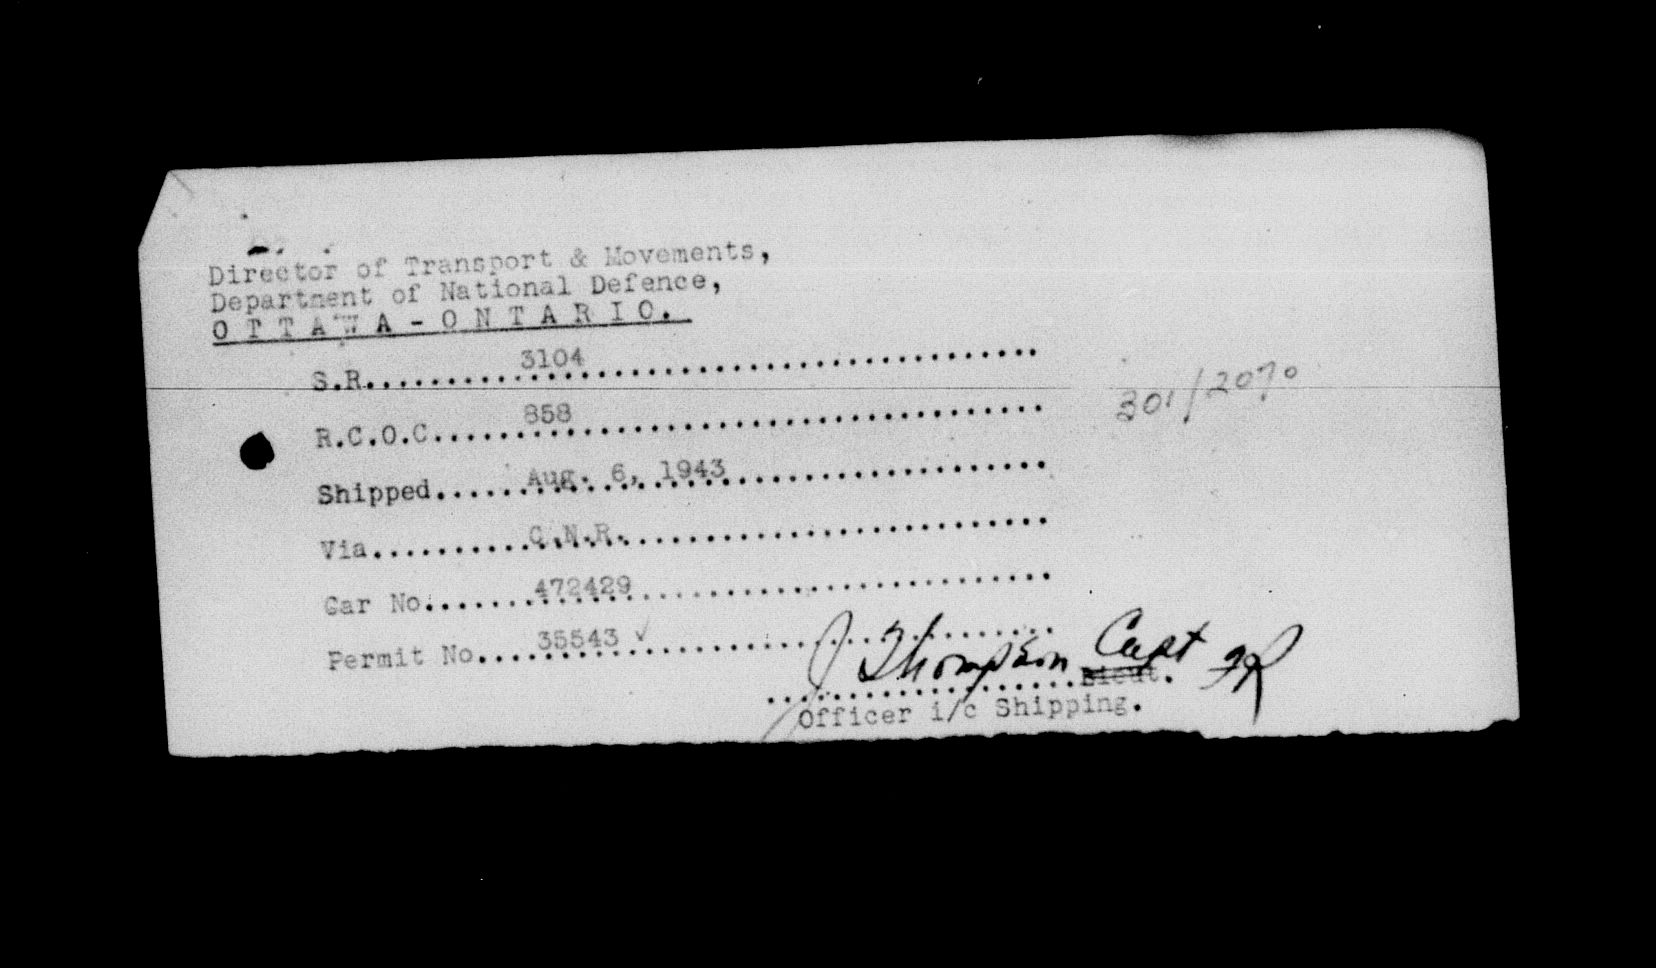 Director of Transport & Movements,
Department of National Defence,
O T T A W A - O N T A R I O.
S.R. 3104
R.C.O.C. 858
301/2070
Shipped Aug. 6, 1943
Via C.N.R.
Car No. 472429
Permit No. 35543 ✓
J Thompson Capt
Lieut.
Officer i/c Shipping.